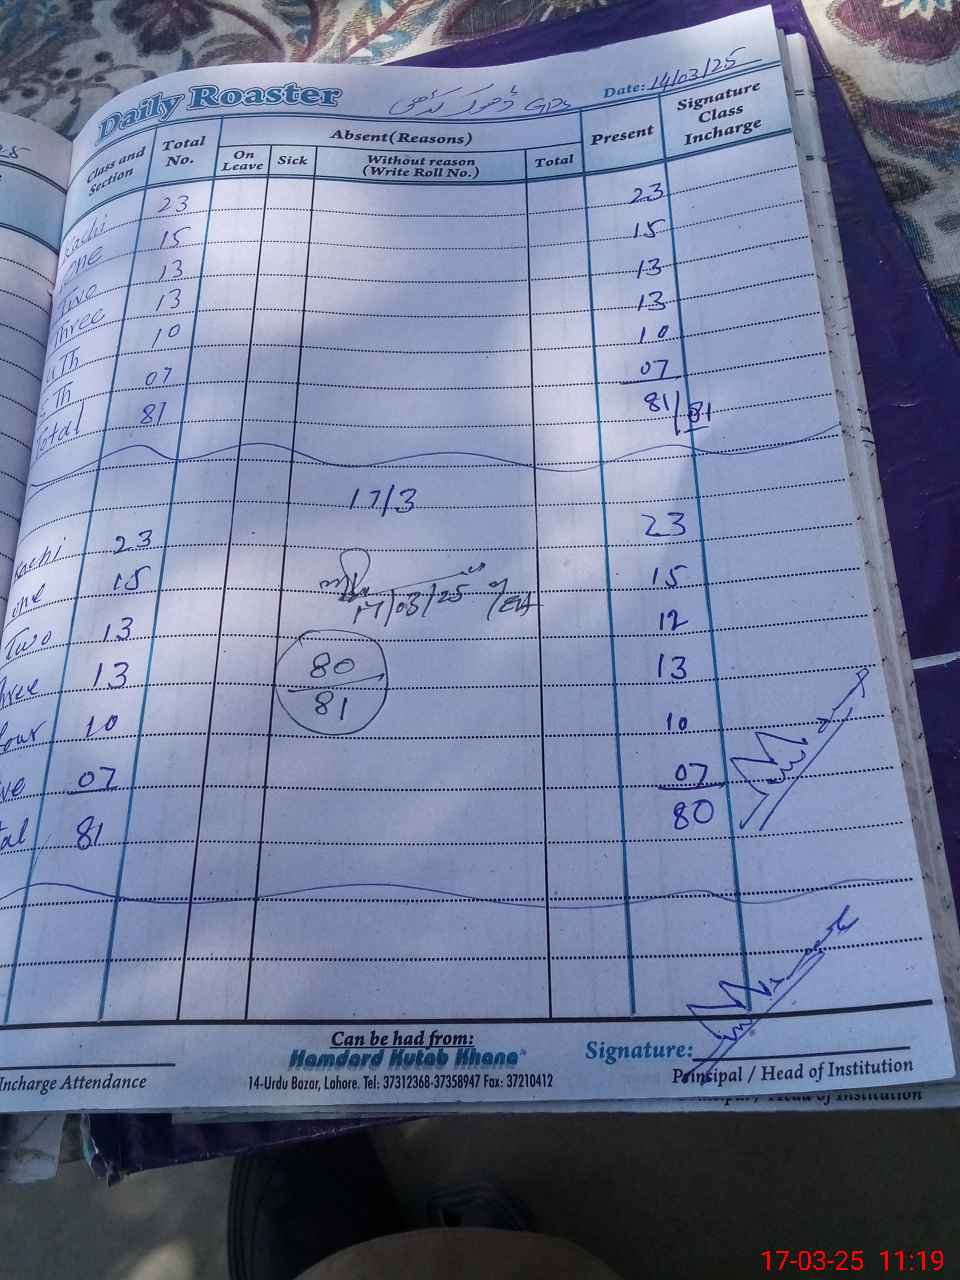 Daily Roaster GPS Date: 14/03/25
Class and Section Total No. Absent(Reasons) Present Signature Class Incharge
On Leave Sick Without reason (Write Roll No.) Total
Kachi 23 23
one 15 15
Two 13 13
Three 13 13
4Th 10 10
5Th 07 07
Total 81 81/81
17/3
Kachi 23 23
one 15 15
17/03/25
Two 13 12
Three 13 80/81 13
four 10 10
five 07 07
Total 81 80
Can be had from:
Hamdard Kutab Khana
Signature:
Incharge Attendance 14-Urdu Bazar, Lahore. Tel: 37312368-37358947 Fax: 37210412 Principal / Head of Institution
Principal / Head of Institution
17-03-25 11:19